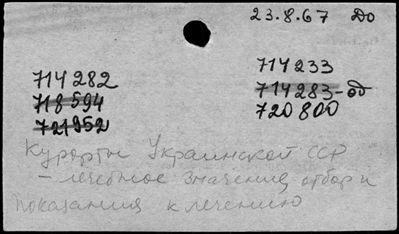 23.8.67 До
714 282
718 594
721 952
714 233
714 283-об
720 800
Курорты Украинской ССР
- лечебное значение, отбор и
показания к лечению